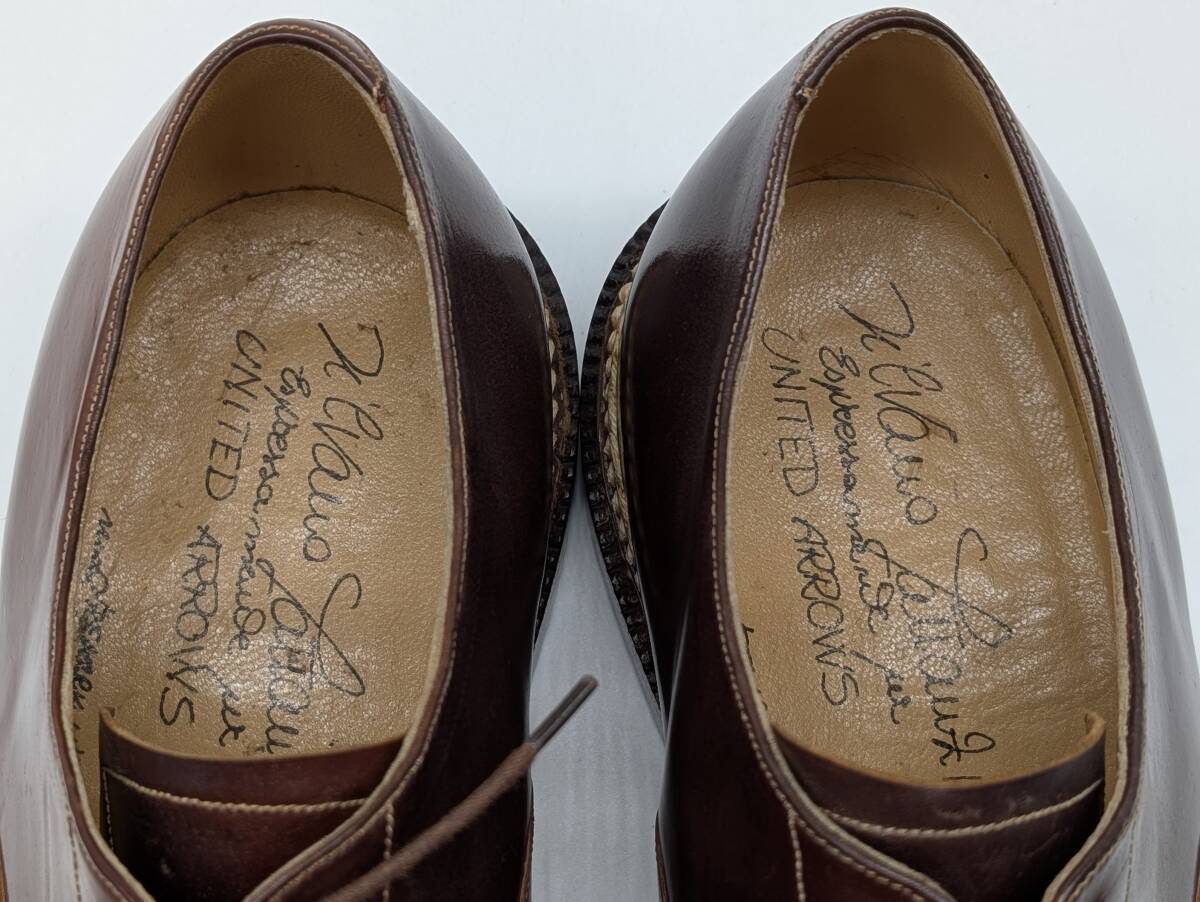 Silvano Lattanzi
Espressamente per
UNITED ARROWS
Silvano Lattanzi
Espressamente per
UNITED ARROWS